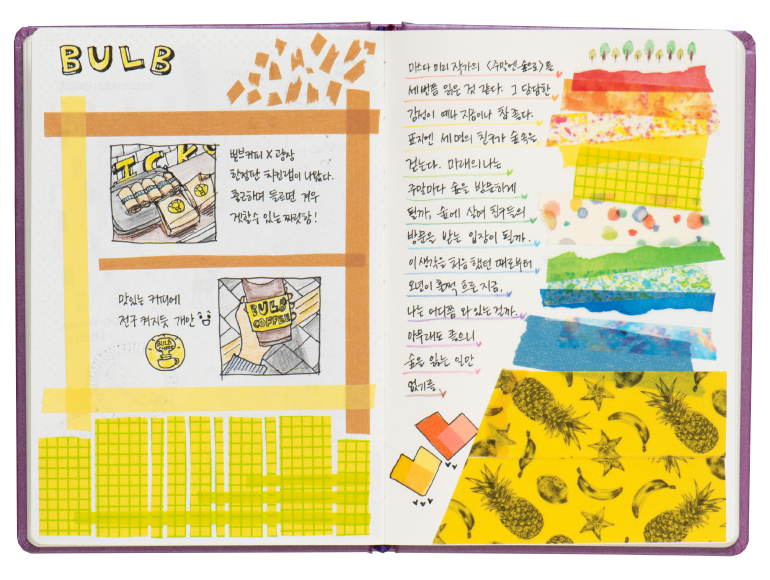 BULB
벌브커피 X 광장
한정판 치킨랩이 나왔다.
출근하며 들르면 겨우
겟할 수 있는 짜릿함!
맛있는 커피에
전구 켜지듯 개안
BULB
COFFEE
BULB
COFFEE
마스다 미리 작가의 <주말엔 숲으로>를
세 번쯤 읽은 것 같다. 그 담담한
감성이 예나 지금이나 참 좋다.
표지엔 세 명의 친구가 숲속을
걷는다. 미래의 나는
주말마다 숲을 방문하게
될까, 숲에 살며 친구들의
방문을 받는 입장이 될까.
이 생각을 처음 했던 때로부터
오년이 훌쩍 흐른 지금.
나는 어디쯤 와 있는 걸까.
아무래도 좋으니
숲을 잃는 일만
없기를.